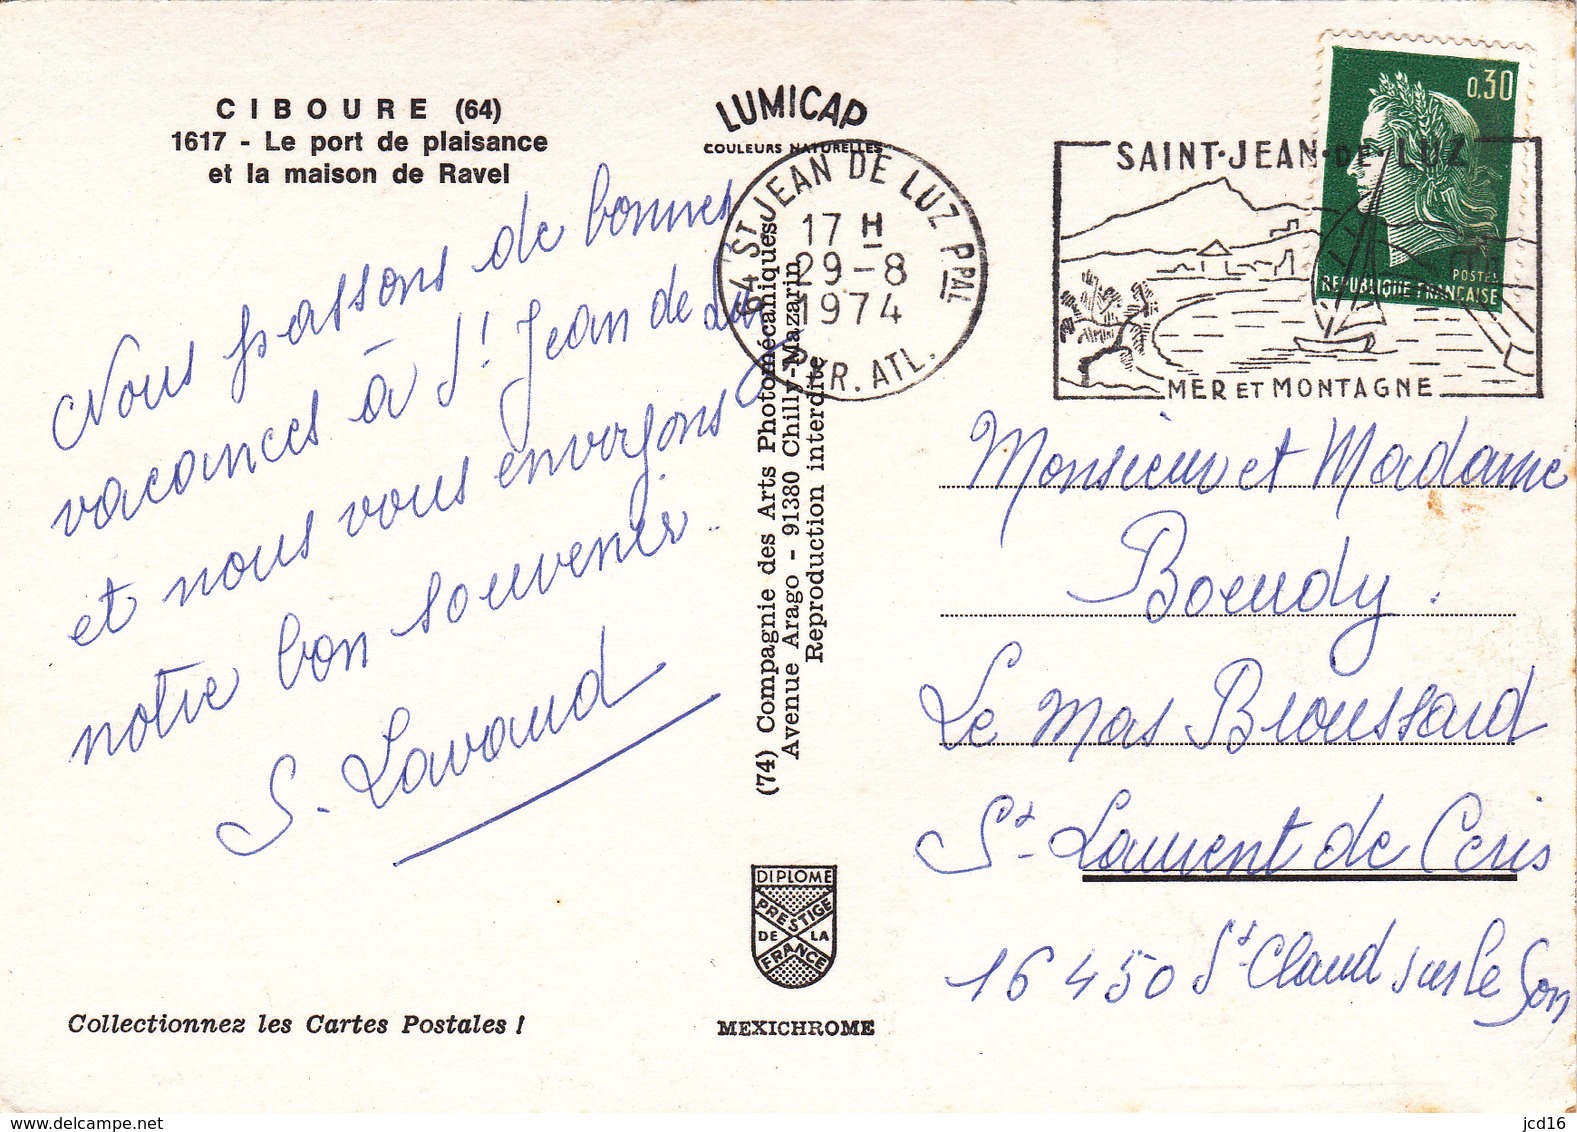 CIBOURE (64)
1617 - Le port de plaisance
et la maison de Ravel
Nous passons de bonnes
vacances à St Jean de Luz
et nous vous envoyons
notre bon souvenir.
S. Lavaud
Collectionnez les Cartes Postales !
LUMICAP
COULEURS NATURELLES
64 ST JEAN DE LUZ PPAL
17 H
29-8
1974
PYR. ATL.
(74) Compagnie des Arts Photomécaniques
Avenue Arago - 91380 Chilly-Mazarin
Reproduction interdite
DIPLOME
PRESTIGE
DE LA
FRANCE
MEXICHROME
SAINT-JEAN-DE-LUZ
MER ET MONTAGNE
0,30
POSTES
REPUBLIQUE FRANÇAISE
Monsieur et Madame
Le Mas Broussard
St Laurent de Ceris
16450 St Claud sur le Son
jcd16